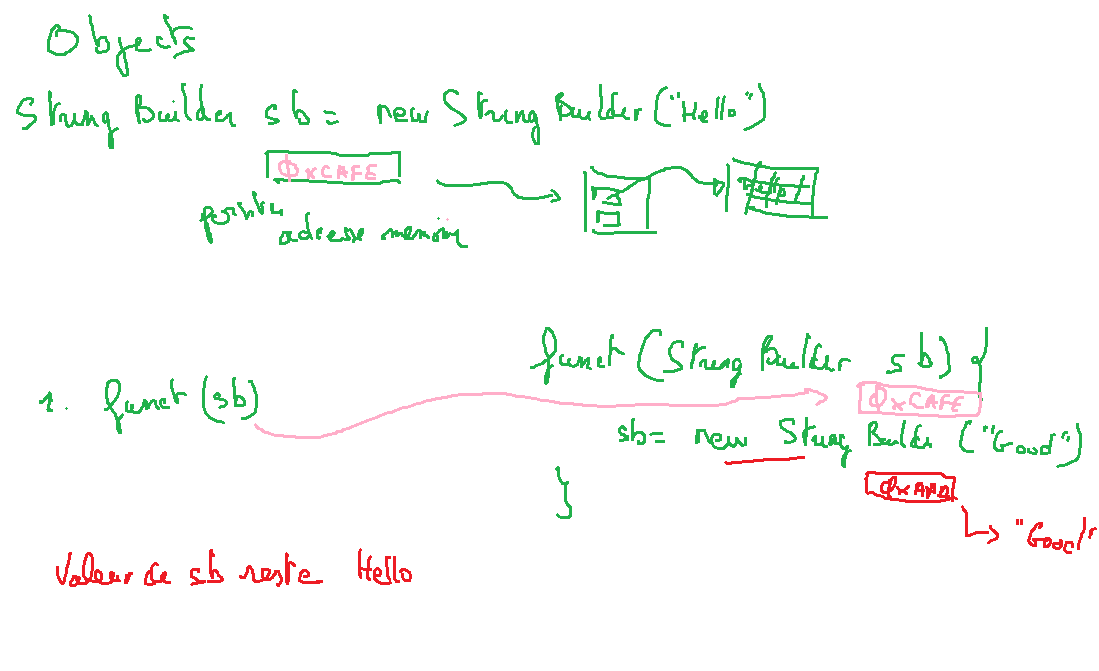 Objects
String Builder sb = new String Builder ("Hello")
ØxCAFE
Hello
adresse memory
funct (String Builder sb) {
1. funct (sb)
ØxCAFE
sb = new String Builder ("Good")
}
"Good"
Valeur de sb reste Hello